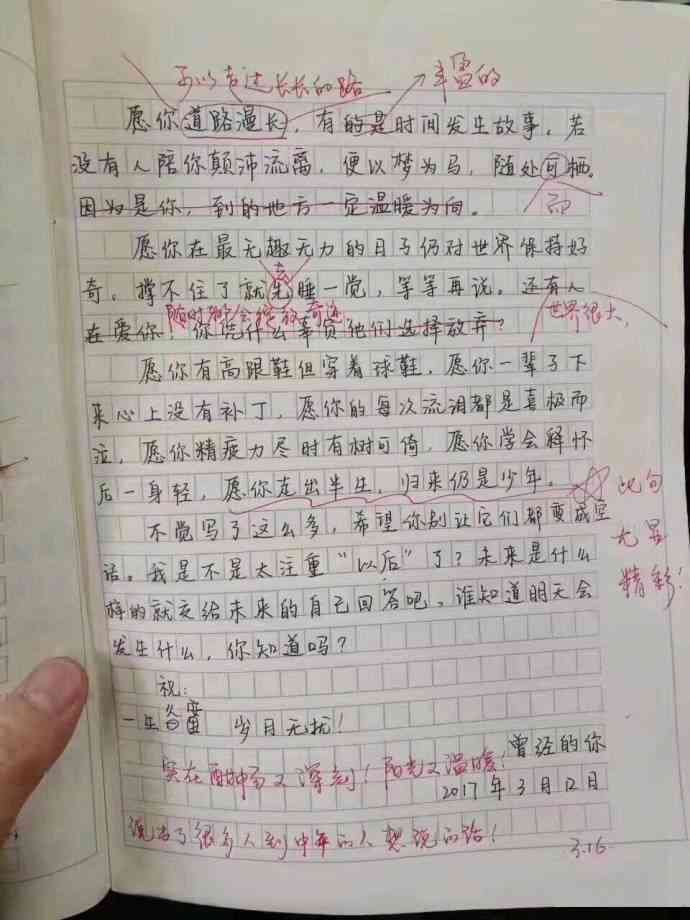 可以走过长长的路
丰富的
愿你道路漫长，有的是时间发生故事。若
没有人陪你颠沛流离，便以梦为马，随处可栖。
因为是你，到的地方一定温暖为向。
而
愿你在最无趣无力的日子仍对世界保持好
去
奇。撑不住了就先睡一觉，等等再说。还有人
随时都会绽放奇迹
在爱你，你凭什么辜负他们选择放弃？
世界很大，
愿你有高跟鞋但穿着球鞋，愿你一辈子下
来心上没有补丁，愿你的每次流泪都是喜极而
泣，愿你精疲力尽时有树可倚，愿你学会释怀
后一身轻，愿你走出半生，归来仍是少年。
此句
尤显
精彩！
不觉写了这么多，希望你别让它们都变成空
话。我是不是太注重“以后”了？未来是什么
样的就交给未来的自己回答吧，谁知道明天会
发生什么，你知道吗？
祝：
一生 岁月无扰！
曾经的你
实在 而又深刻！阳光又温暖！
2017年3月12日
说出了很多人到中年的人想说的话！
3.16